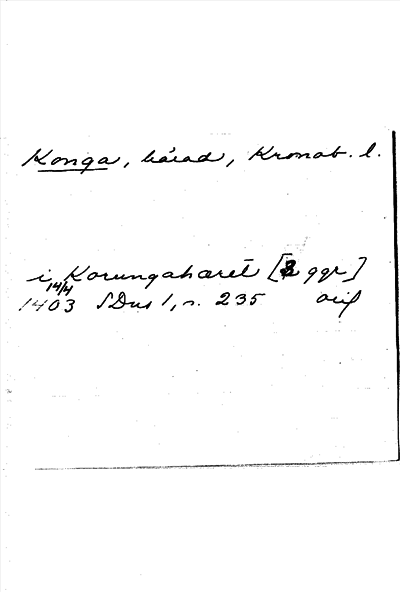 Konga, härad, Kronob. l.
i Korungahæret [2 ggr]
14/4
1403 SDns 1, s. 235 orig